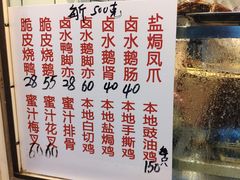 500克
脆皮烧鸭
28
脆皮烧鹅
55
卤水鸭脚亦
28
卤水鹅脚亦
40
卤水鹅肾
60
卤水鹅肠
40
盐焗凤爪
蜜汁梅叉
60
蜜汁花叉
60
蜜汁排骨
本地白切鸡
本地盐焗鸡
本地手撕鸡
本地豉油鸡
150